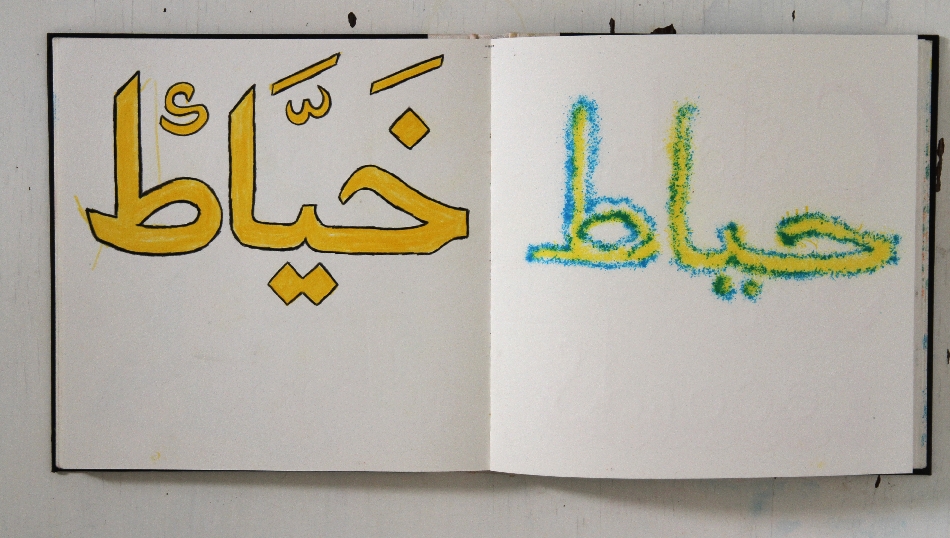 حياط
خَيَّاطٌ